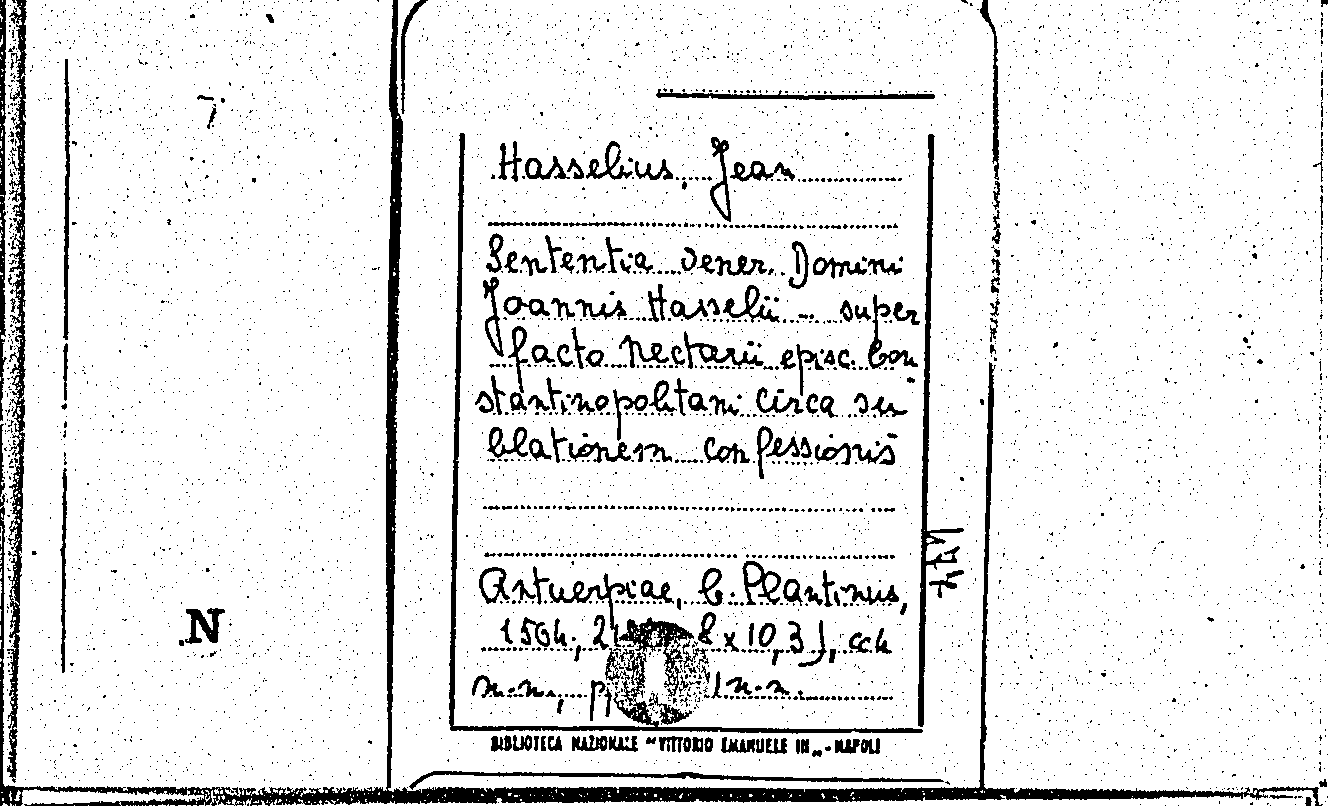 Hasselius, Jean
Sententia vener. Domini
Joannis Hasselii - super
facto Nectarii episc. Con
stantinopolitani circa su
blationem confessionis
Antuerpiae, C. Plantinus,
1564, x 10,3), cc4
n.n., n.n.
N
BIBLIOTECA NAZIONALE "VITTORIO EMANUELE III„ - NAPOLI